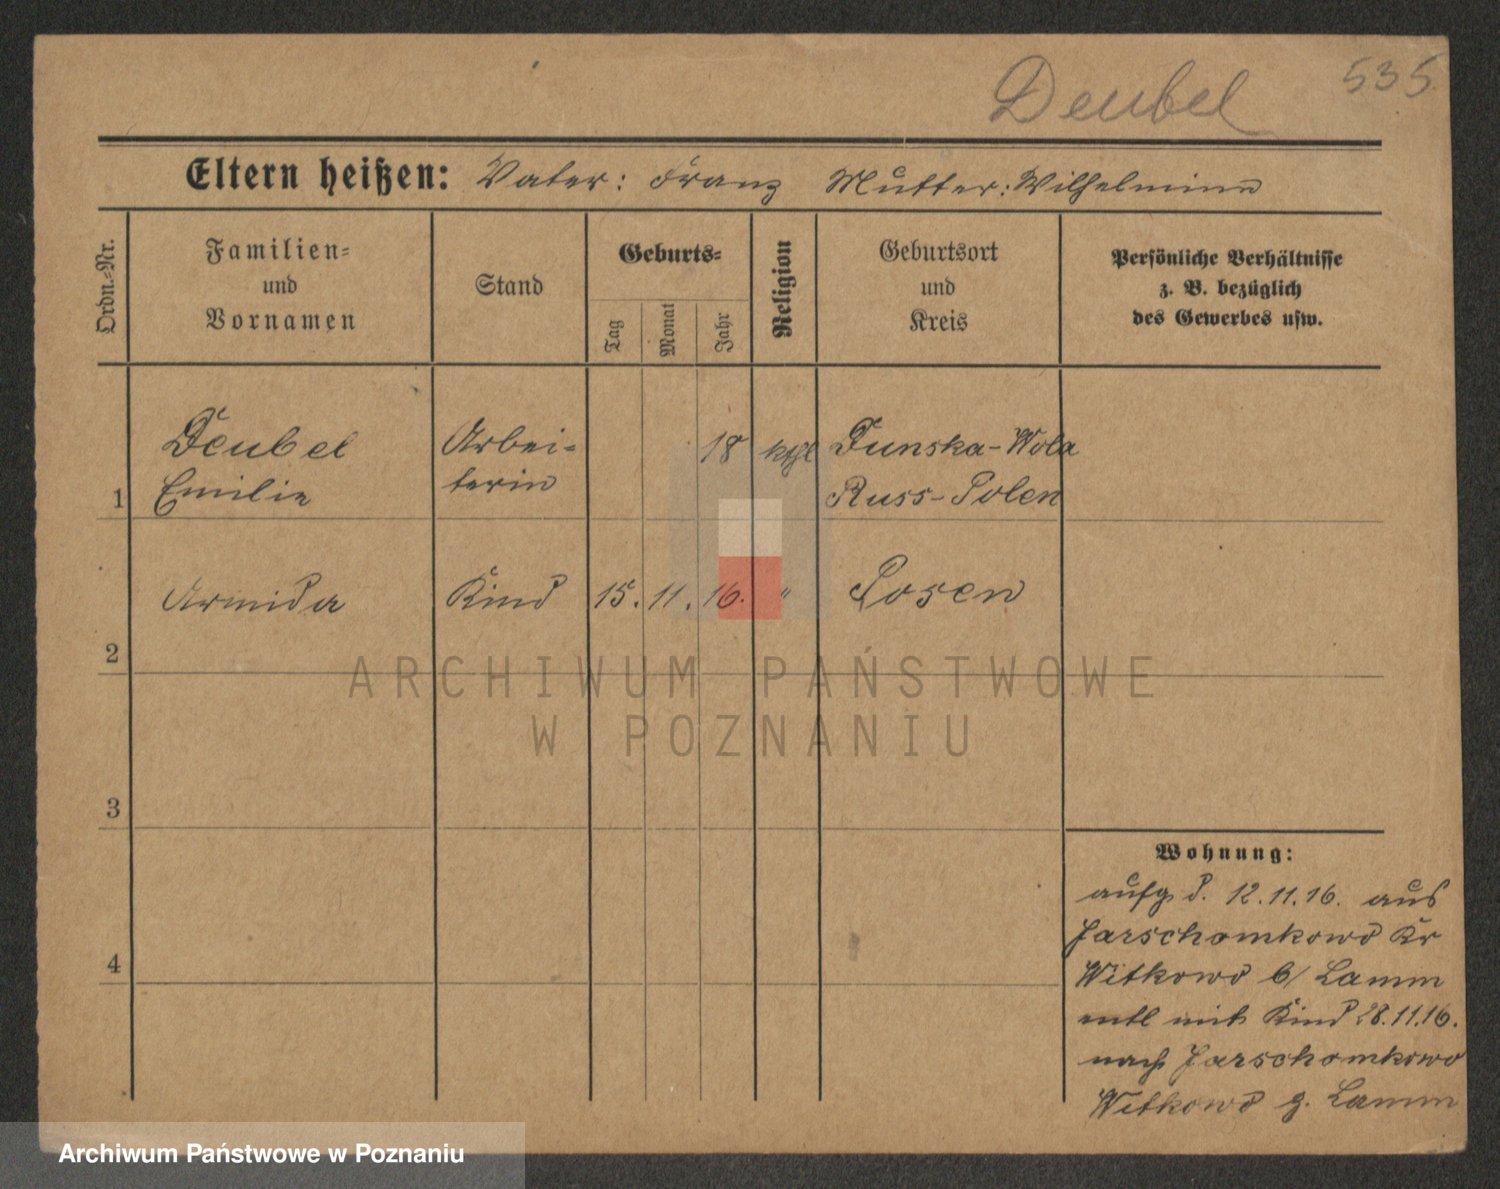 Deubel 535
Eltern heißen: Vater: Franz Mutter: Wilhelmine
Ordn.=Nr.
Familien=
und
Vornamen
Stand
Geburts=
Tag
Monat
Jahr
Religion
Geburtsort
und
Kreis
Persönliche Verhältnisse
z. B. bezüglich
des Gewerbes usw.
1
Deubel
Emilie
Arbei=
terin
18
kthl
Dunska-Wola
Russ-Polen
2
Armida
Kind
15. 11. 16.
"
Posen
3
4
Wohnung:
aufg d. 12.11.16. aus
Jarschomkowo Kr
Witkowo b/ Lamm
entl mit Kind 28.11.16.
nach Jarschomkowo
Witkowo z. Lamm
ARCHIWUM PAŃSTWOWE
W POZNANIU
Archiwum Państwowe w Poznaniu